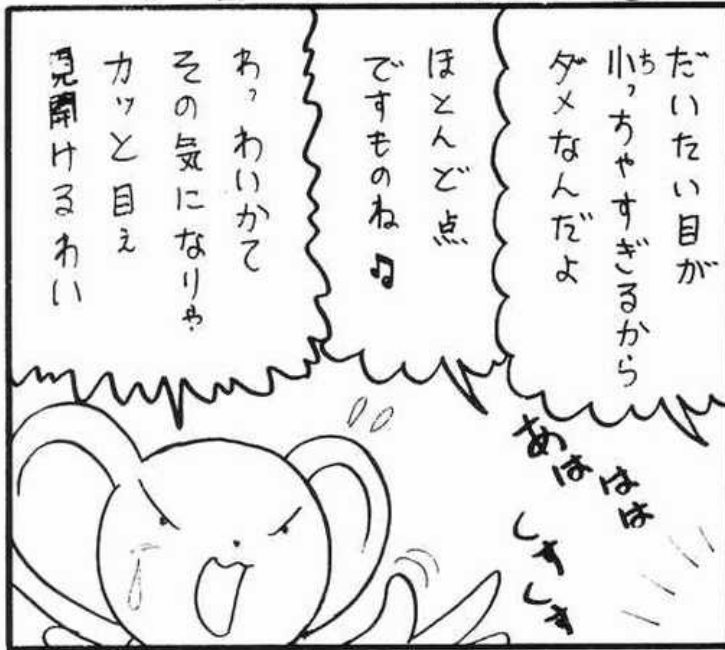 だいたい目が
小っちゃすぎるから
ち
ダメなんだよ
ほとんど点
ですものね♫
わっわいかて
その気になりゃ
カッと目ぇ
見開けるわい
あははは
くすくす